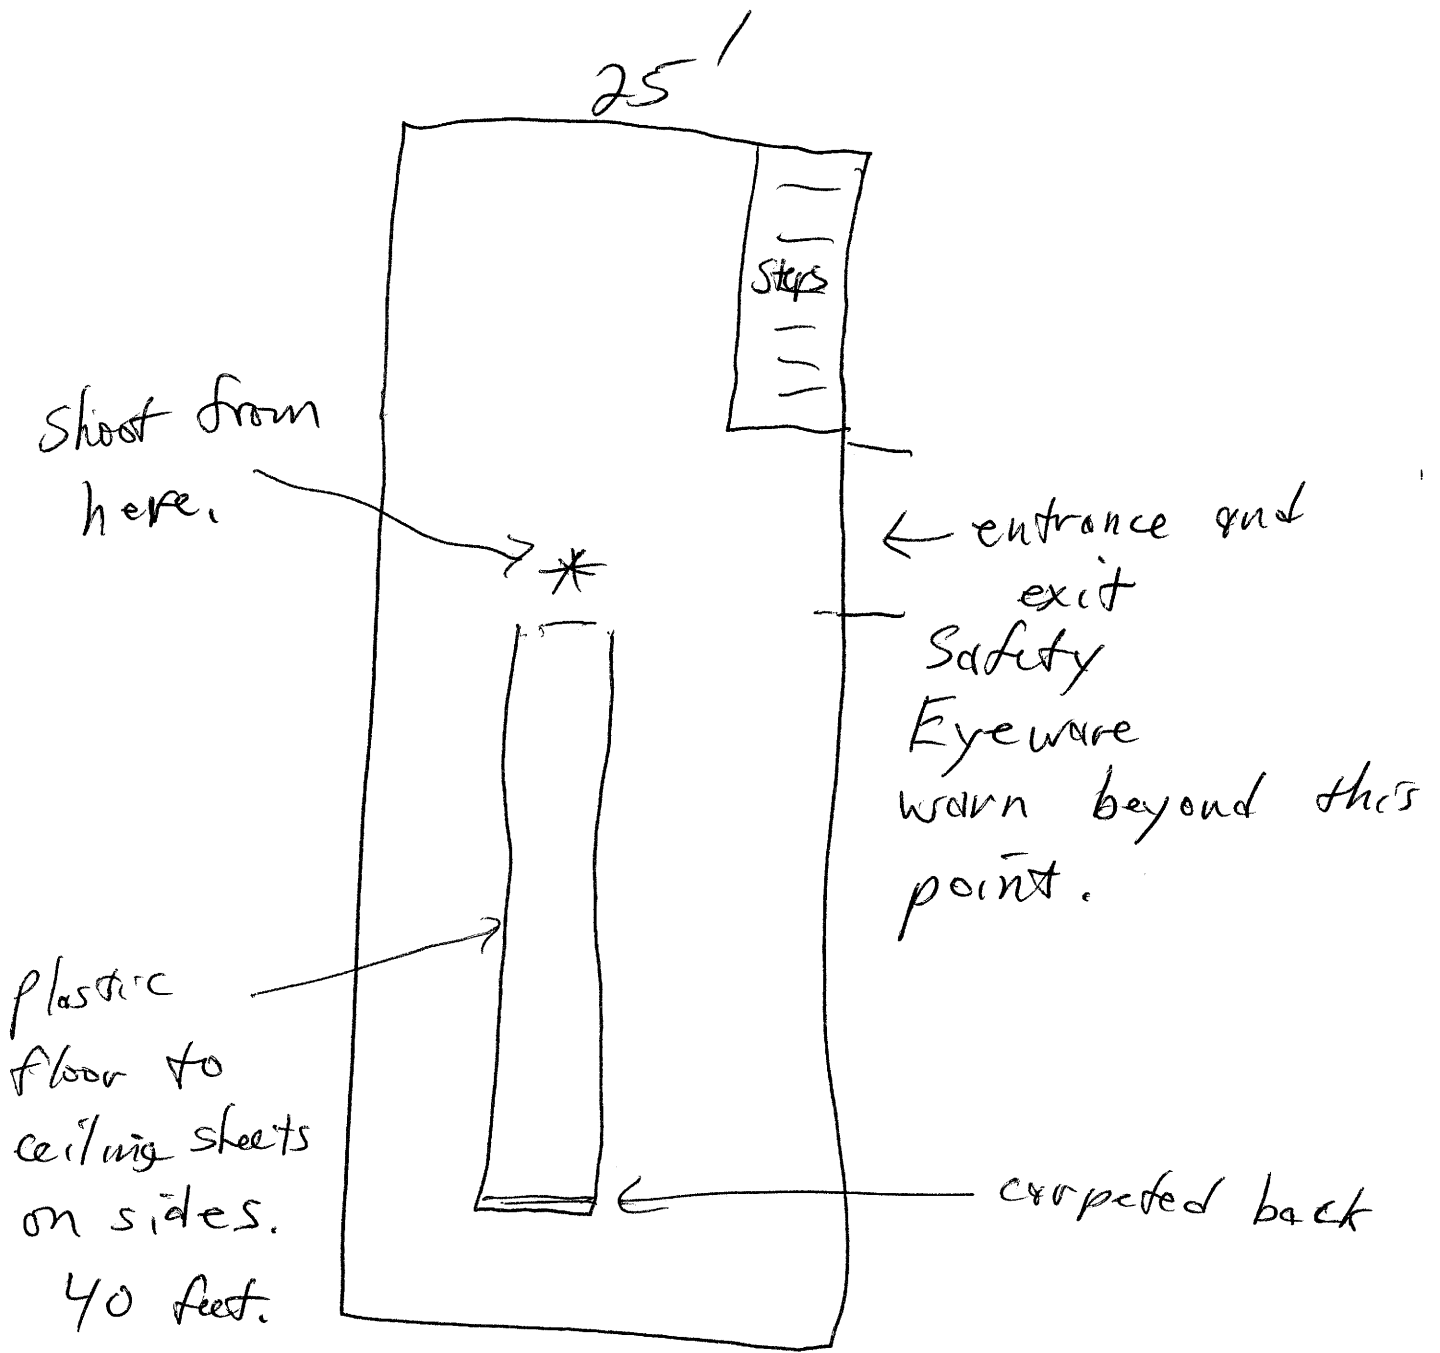 25'
Steps
Shoot from
here.
entrance and
exit
Safety
Eyeware
warn beyond this
point.
plastic
floor to
ceiling sheets
on sides.
40 feet.
carpeted back